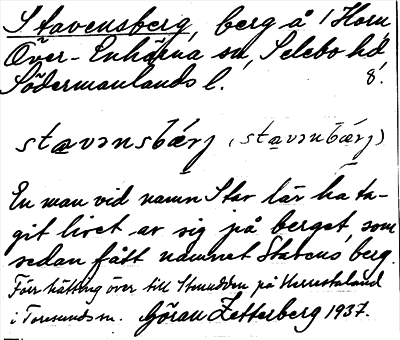 Stavensberg, berg å Horn,
Över-Enhörna sn, Selebo hd
Södermanlands l. 8.
stavənsbærj (stavənbærj)
En man vid namn Stav lär ha ta-
git livet av sig på berget, som
sedan fått namnet Stavens berg.
Förr kätting över till Stenudden på Herrestaland
i Toresunds sn. Göran Zetterberg 1937.